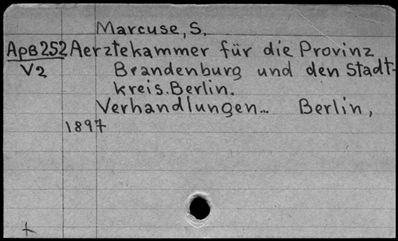 Marcuse, S.
ApB252 Aerztekammer für die Provinz
V2 Brandenburg und den Stadt-
kreis.Berlin.
Verhandlungen... Berlin,
1897